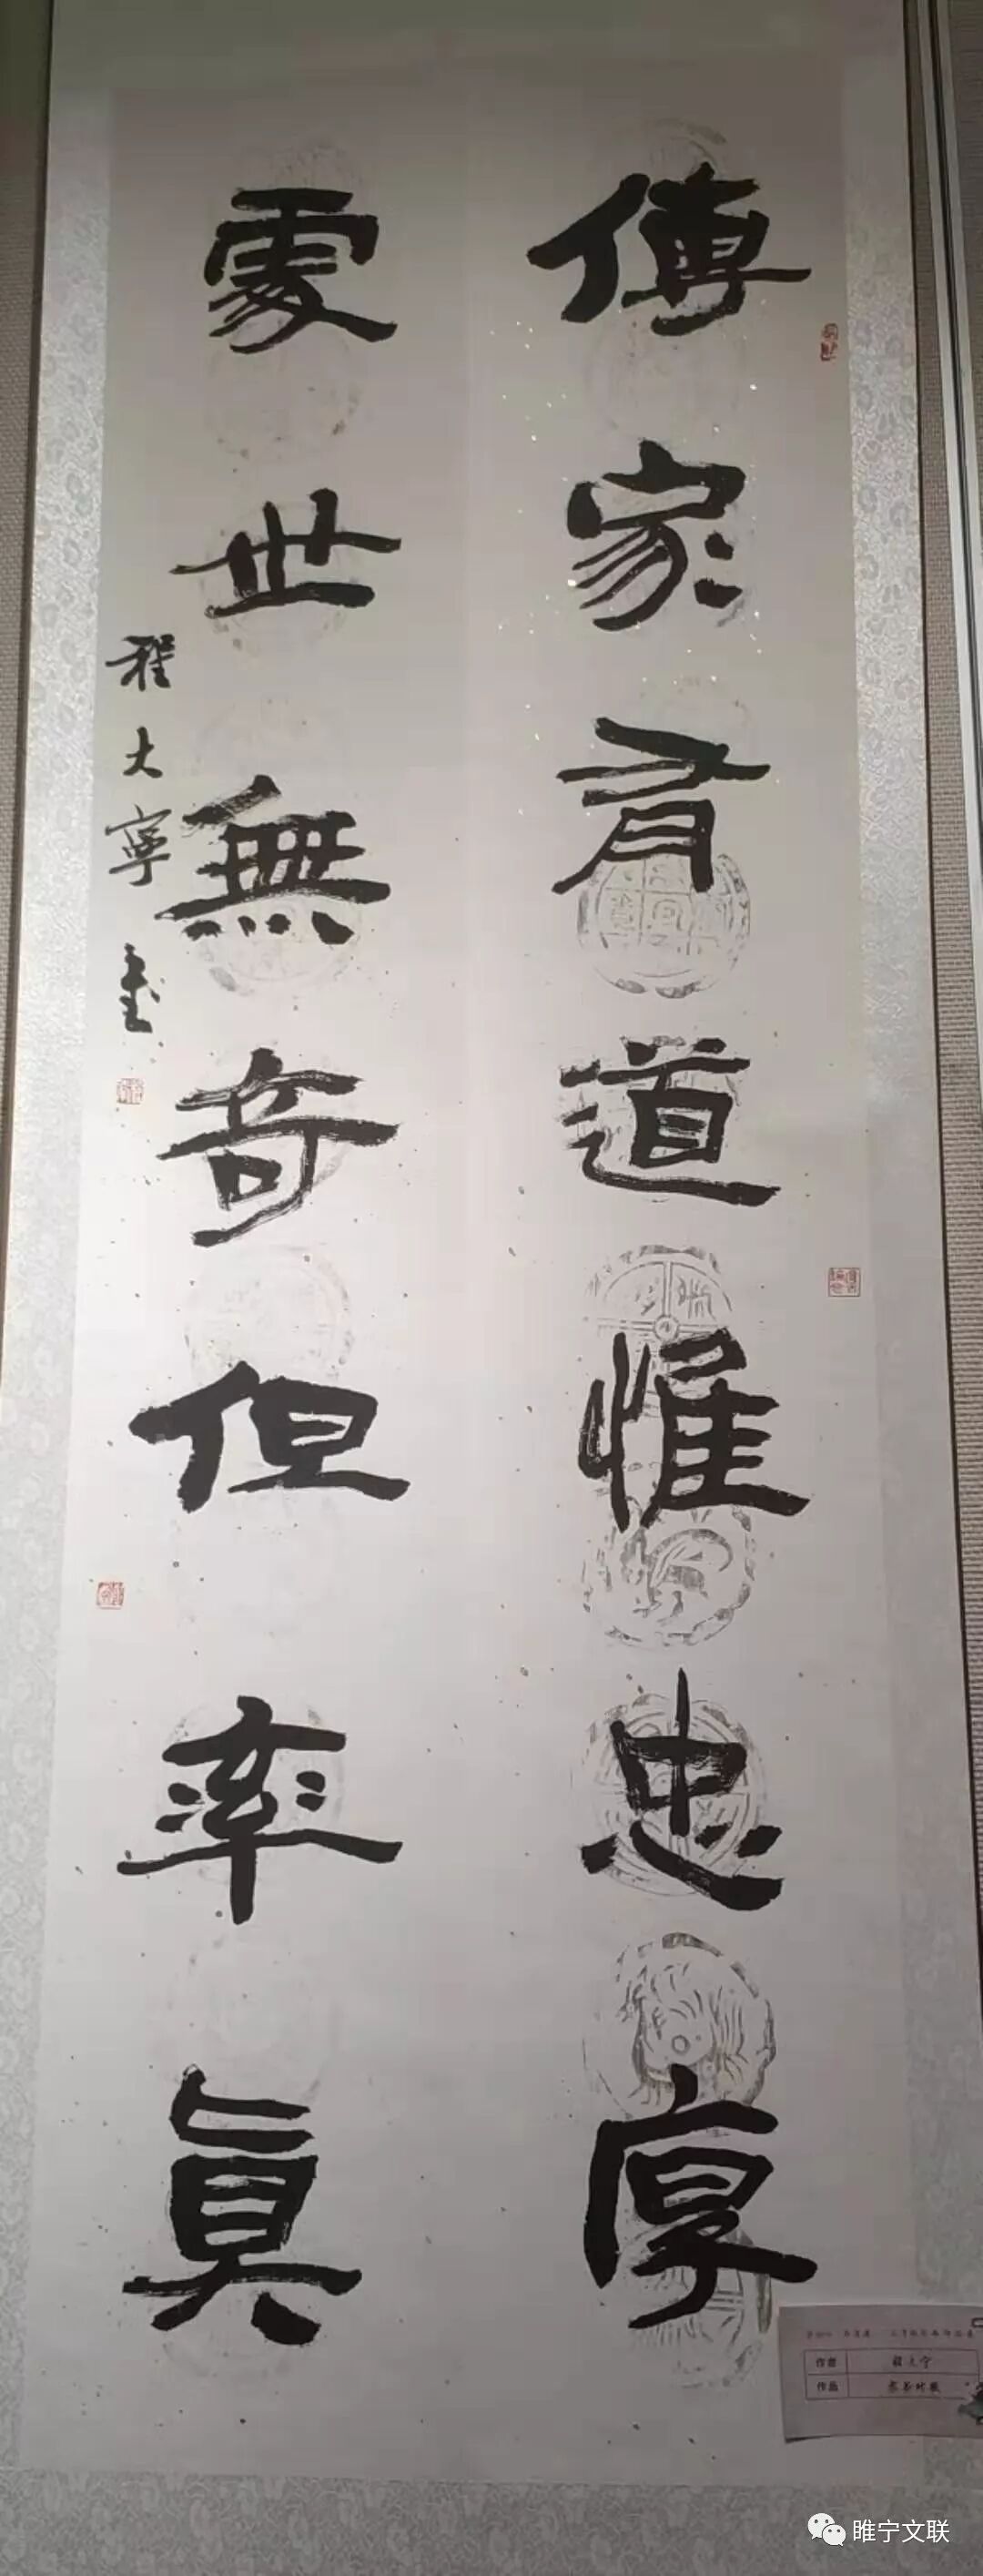 傳家有道惟忠厚
處世無奇但率真
程大寧書
作者 程大宁
作品 隶书对联
睢宁文联